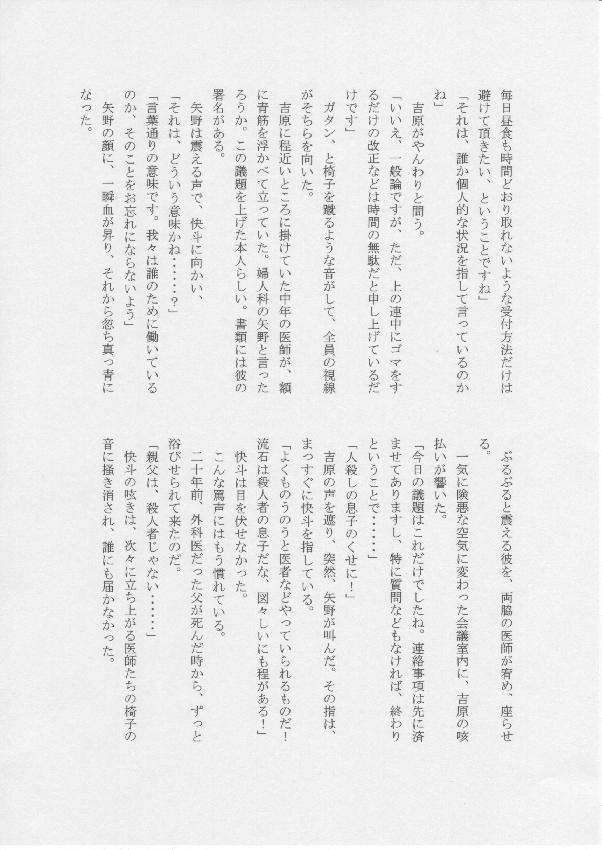 毎日昼食も時間どおり取れないような受付方法だけは
避けて頂きたい、ということですね」
「それは、誰か個人的な状況を指して言っているのか
ね」
吉原がやんわりと問う。
「いいえ、一般論ですが、ただ、上の連中にゴマをす
るだけの改正などは時間の無駄だと申し上げているだ
けです」
ガタン、と椅子を蹴るような音がして、全員の視線
がそちらを向いた。
吉原に程近いところに掛けていた中年の医師が、額
に青筋を浮かべて立っていた。婦人科の矢野と言った
ろうか。この議題を上げた本人らしい。書類には彼の
署名がある。
矢野は震える声で、快斗に向かい、
「それは、どういう意味かね・・・・・・？」
「言葉通りの意味です。我々は誰のために働いている
のか、そのことをお忘れにならないよう」
矢野の顔に、一瞬血が昇り、それから忽ち真っ青に
なった。
ぶるぶると震える彼を、両脇の医師が宥め、座らせ
る。
一気に険悪な空気に変わった会議室内に、吉原の咳
払いが響いた。
「今日の議題はこれだけでしたね。連絡事項は先に済
ませてありますし、特に質問などもなければ、終わり
ということで・・・・・・」
「人殺しの息子のくせに！」
吉原の声を遮り、突然、矢野が叫んだ。その指は、
まっすぐに快斗を指している。
「よくものうのうと医者などやっていられるものだ！
流石は殺人者の息子だな、図々しいにも程がある！」
快斗は目を伏せなかった。
こんな罵声にはもう慣れている。
二十年前、外科医だった父が死んだ時から、ずっと
浴びせられて来たのだ。
「親父は、殺人者じゃない・・・・・・」
快斗の呟きは、次々に立ち上がる医師たちの椅子の
音に掻き消され、誰にも届かなかった。